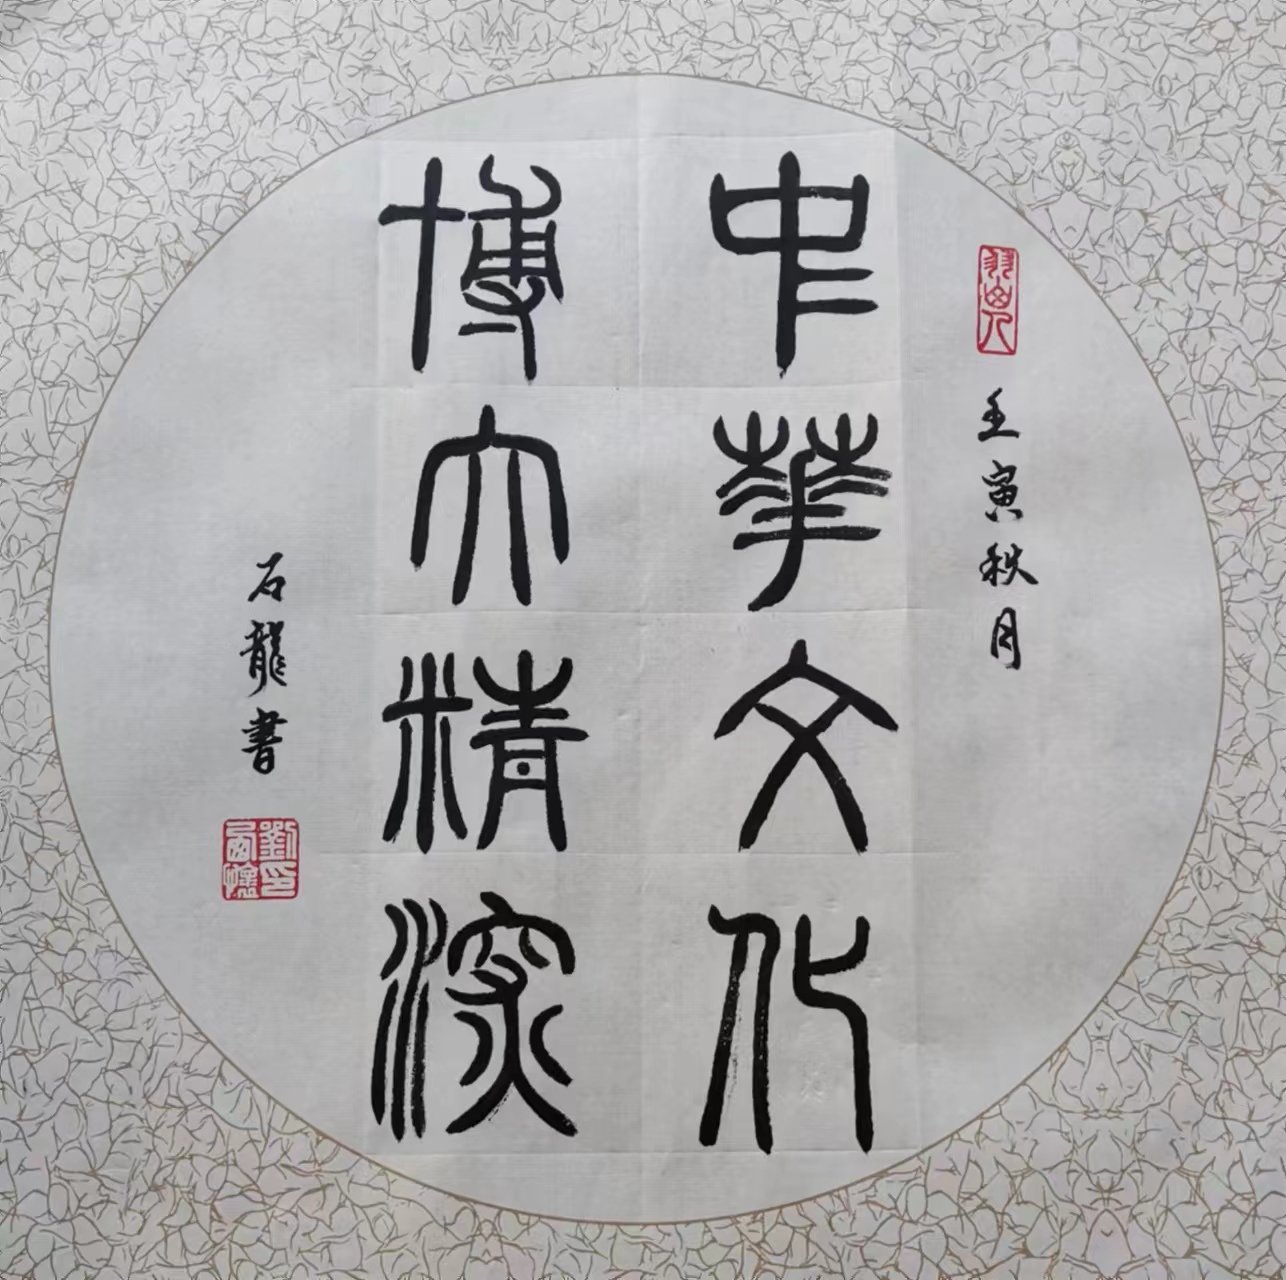 壬寅秋月
中華文化
博大精深
石龍書